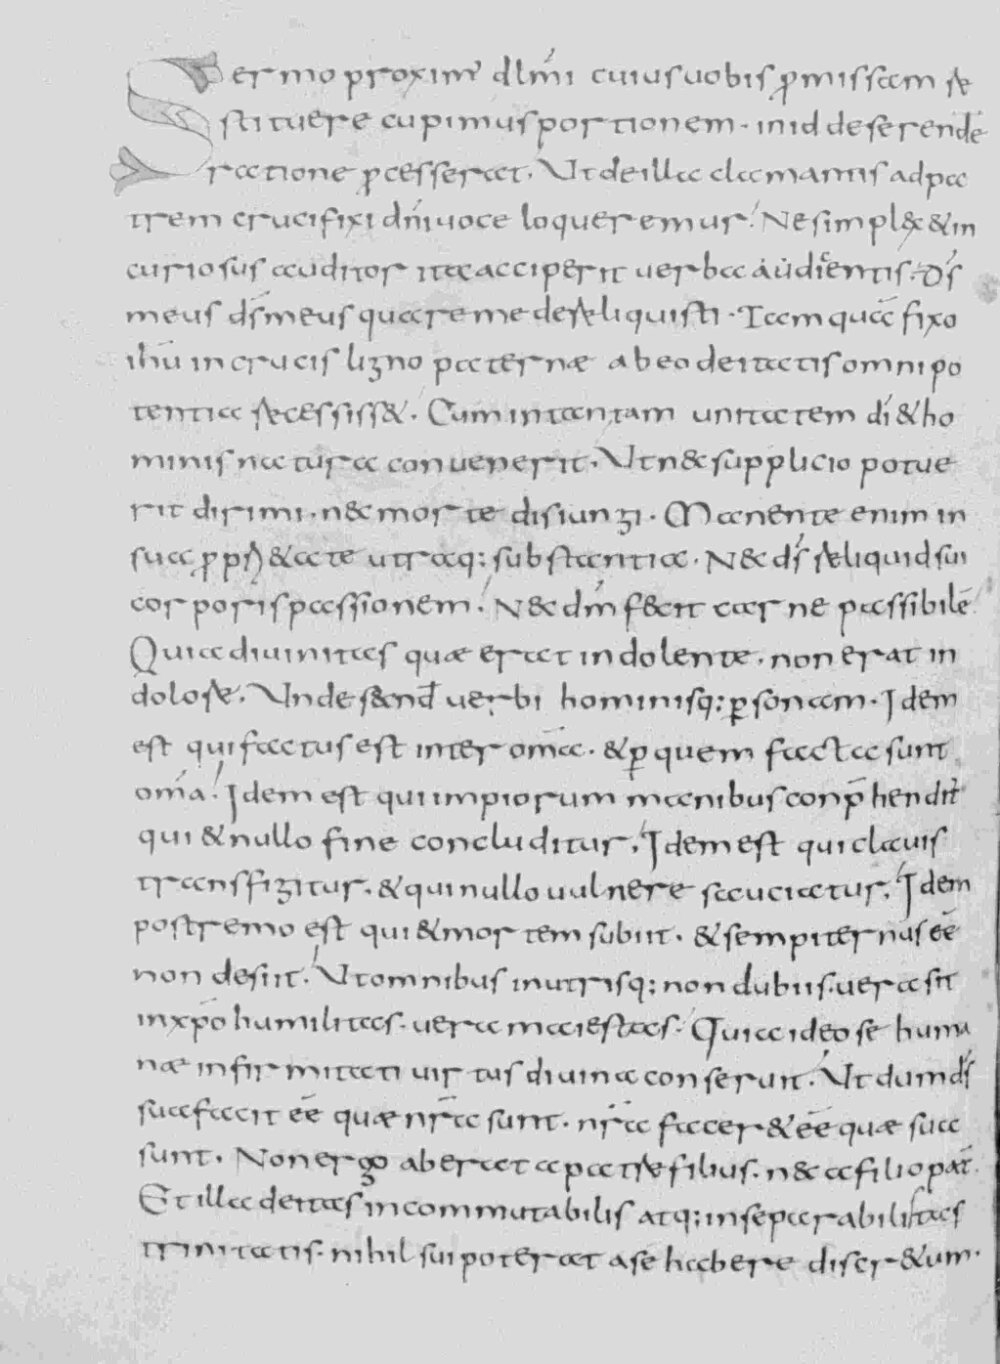 Sermo proximꝰ dilm̄i cuius uobis ꝓmissam re
stituere cupimus portionem· in id deserendē
ratione ꝓcesserat· Ut de illa clamantis ad pa
trem crucifixi dn̄i uoce loqueremur· Ne simplex & in
curiosus auditor ita acciperit uerba audientis· Ds̄
meus ds̄ meus quare me dereliquisti· Tamquā fixo
ihū in crucis ligno paternæ ab eo deitatis omnipo
tentia recessiss&· Cum in tantam unitatem dī & ho
minis natura conuenerit· Ut n& supplicio potue
rit dirimi· n& morte disiungi· Manente enim in
sua ꝓprı̄&ate utraq; substantia· N& ds̄ reliquid sui
corporis passionem· N& dm̄ fecit carne passibilē
Quia diuinitas quæ erat in dolente· non erat in
dolore· Unde s&cnd̄ uerbi hominisq; ꝑsonam· Idem
est qui factus est inter om̄a· & ꝑ quem facta sunt
om̄a· Idem est qui impiorum manibus conp̄henditr̄
qui & nullo fine concluditur· Idem est qui clauis
transfigitur· & qui nullo uulnere sauciatur· Idem
postremo est qui & mortem subiit· & sempiternus eē
non desiit· Ut omnibus in utrisq; non dubiis· uera sit
in xp̄o humilitas· uera maiestas· Quia ideo se huma
næ infirmitati uirtus diuina conseruit· Ut dum ds̄
sua facit eē quæ nr̄a sunt· nr̄a facer& eē quæ sua
sunt· Non ergo aberat a patre filius· n& a filio pat̄
Et illa deitas incommutabilis atq; inseparabilitas
trinitatis· nihil sui poterat a se habere discr&um·